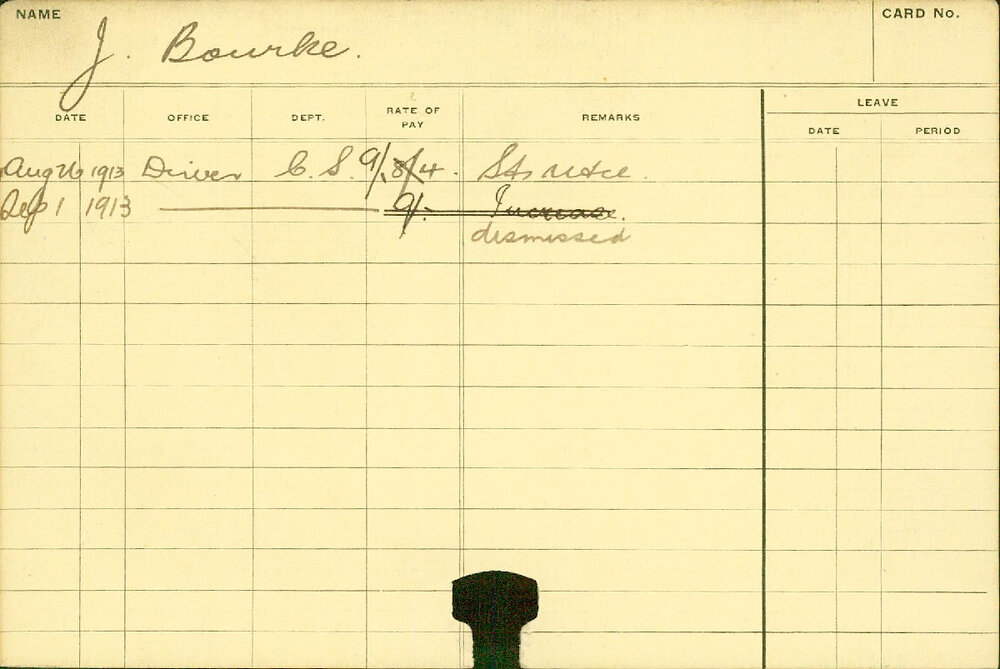 NAME
J. Bourke.
CARD No.
DATE OFFICE DEPT. RATE OF PAY REMARKS LEAVE
DATE PERIOD
Aug 26 1913 Driver C. S. 9/. 8/4.
Sep 1 1913 9/- Increase.
dismissed